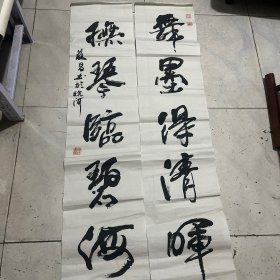 舞墨得清暉
撫琴臨碧海